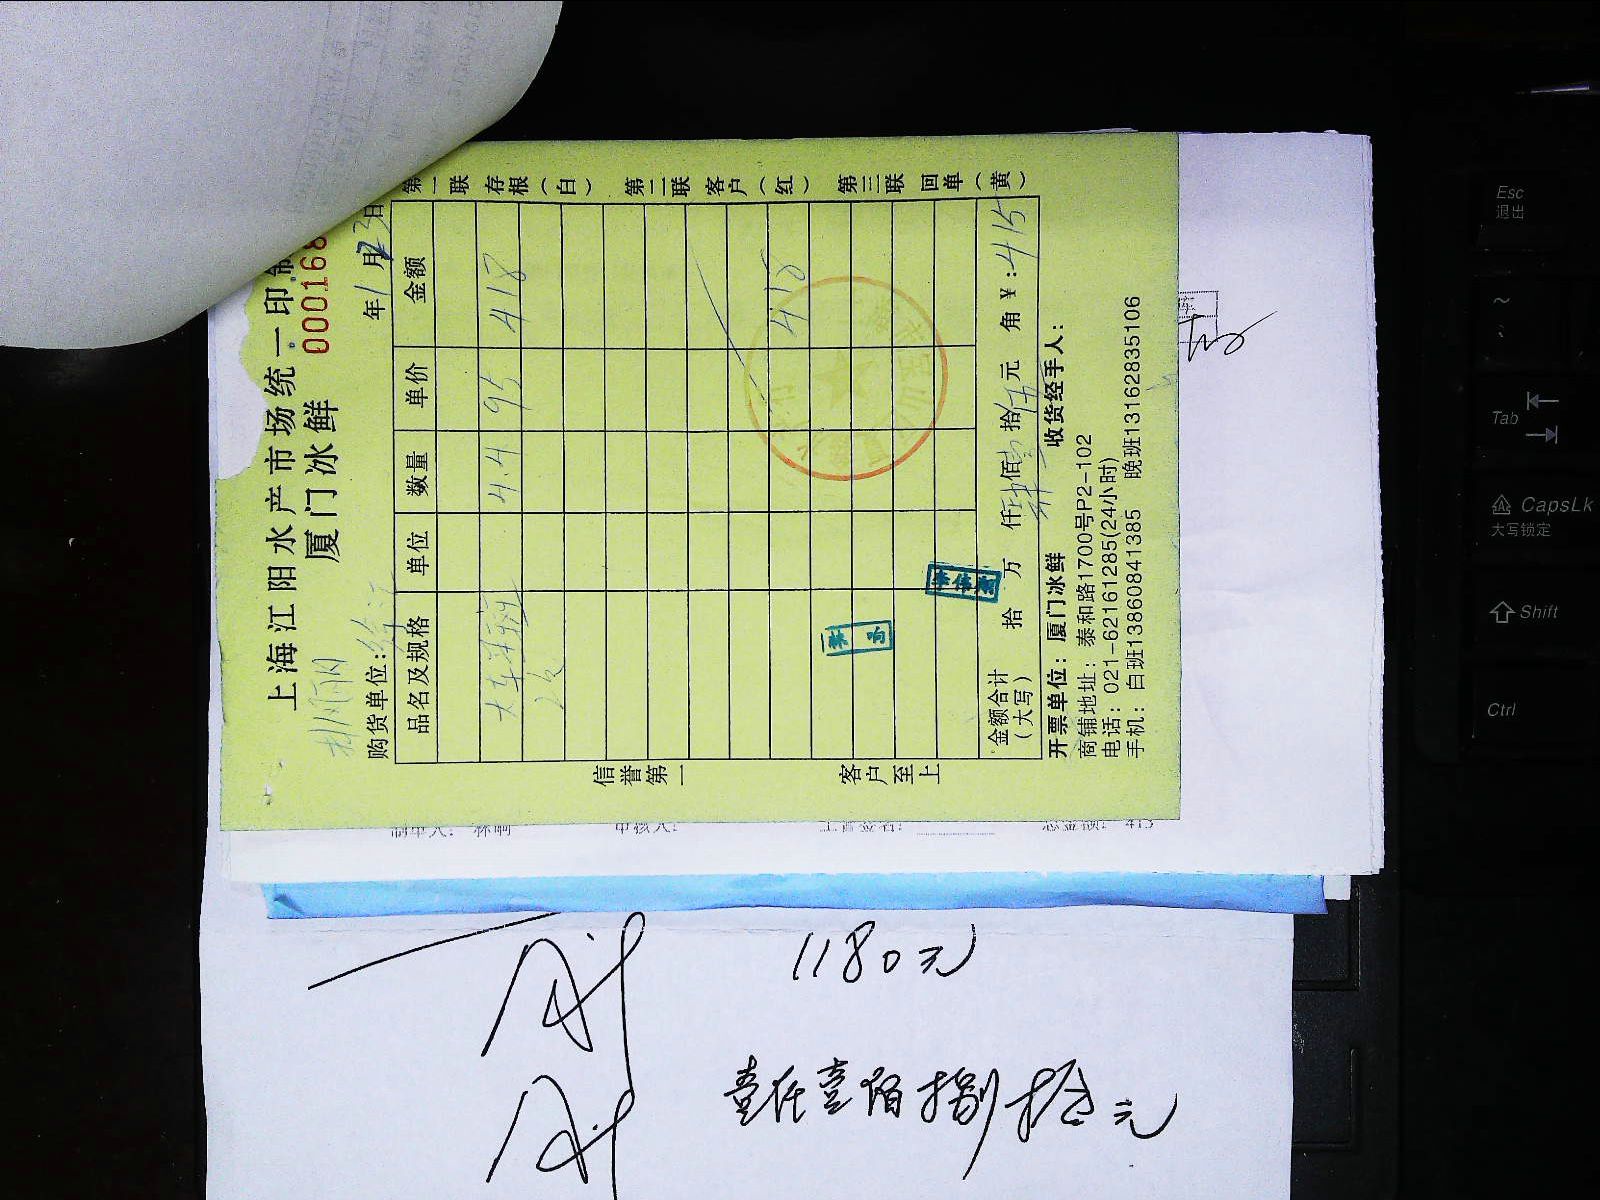 上海江阳水产市场统一印制
厦门冰鲜
0001168
购货单位:
年1月23日
品名及规格 单位 数量 单价 金额
4.4 95 418
418
金额合计(大写) 拾 万 仟 佰 拾 元 角 ¥:415
第一联 存根(白) 第二联 客户(红) 第三联 回单(黄)
信誉第一 客户至上
开票单位:厦门冰鲜 收货经手人:
商铺地址:泰和路1700号P2-102
电话:021-62161285(24小时)
手机:白班13860841385 晚班13162835106
制单人: 林 审核人: 主管签名: 总金额: 415
1180元
壹仟壹佰捌拾元
Esc
退出
~
Tab
CapsLk
大写锁定
Shift
Ctrl